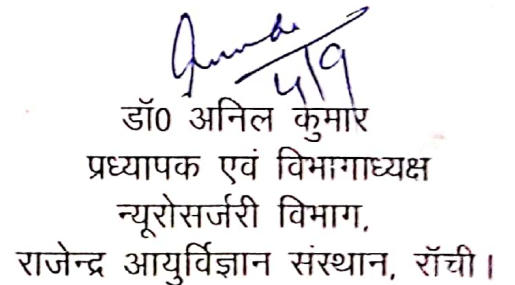 4/9
डॉ0 अनिल कुमार
प्रध्यापक एवं विभागाध्यक्ष
न्यूरोसर्जरी विभाग,
राजेन्द्र आयुर्विज्ञान संस्थान, रॉची।